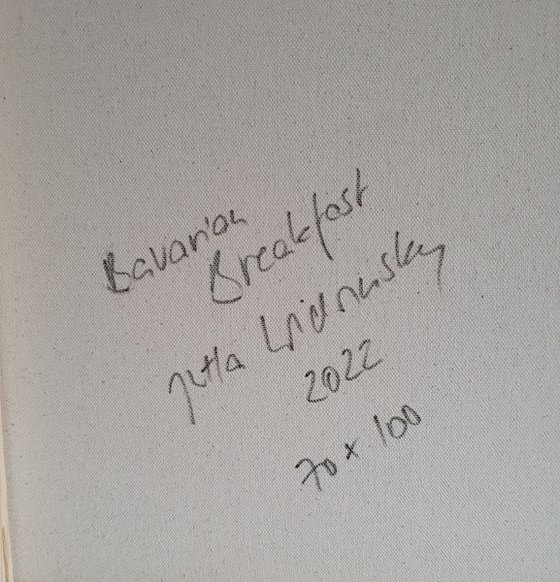 Bavarian
Breakfast
Jutta
2022
70 x 100